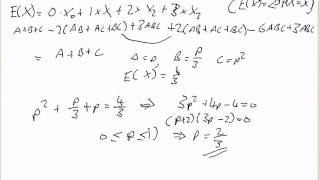 E(X) = 0·x₀ + 1×X₁ + 2×X₂ + 3×X₃ (E(X)=ΣxP(X=x))
A+B+C -2(AB+AC+BC)+3ABC+2(AB+AC+BC)-6ABC+3ABC
= A+B+C A=p, B=p/3 C=p²
E(X)=4/3
p² + p/3 + p = 4/3 ⇒ 3p²+4p-4=0
(p+2)(3p-2)=0
0≤p≤1) ⇒ p=2/3